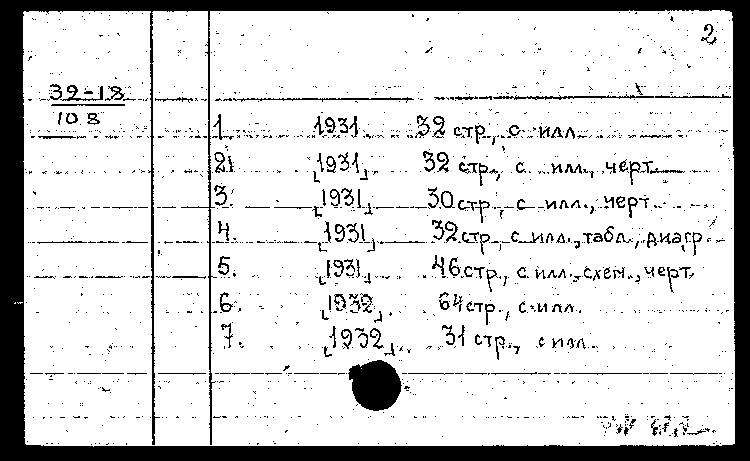 2
32-18
108
1. 1931. 32 стр., с илл.
2. [1931] 32 стр., с илл., черт.
3. [1931] 30 стр., с илл., черт.
4. [1931] 32 стр., с илл., табл., диагр.
5. [1931] 46 стр., с илл., схем., черт.
6. [1932] 64 стр., с илл.
7. [1932] 31 стр., с илл.